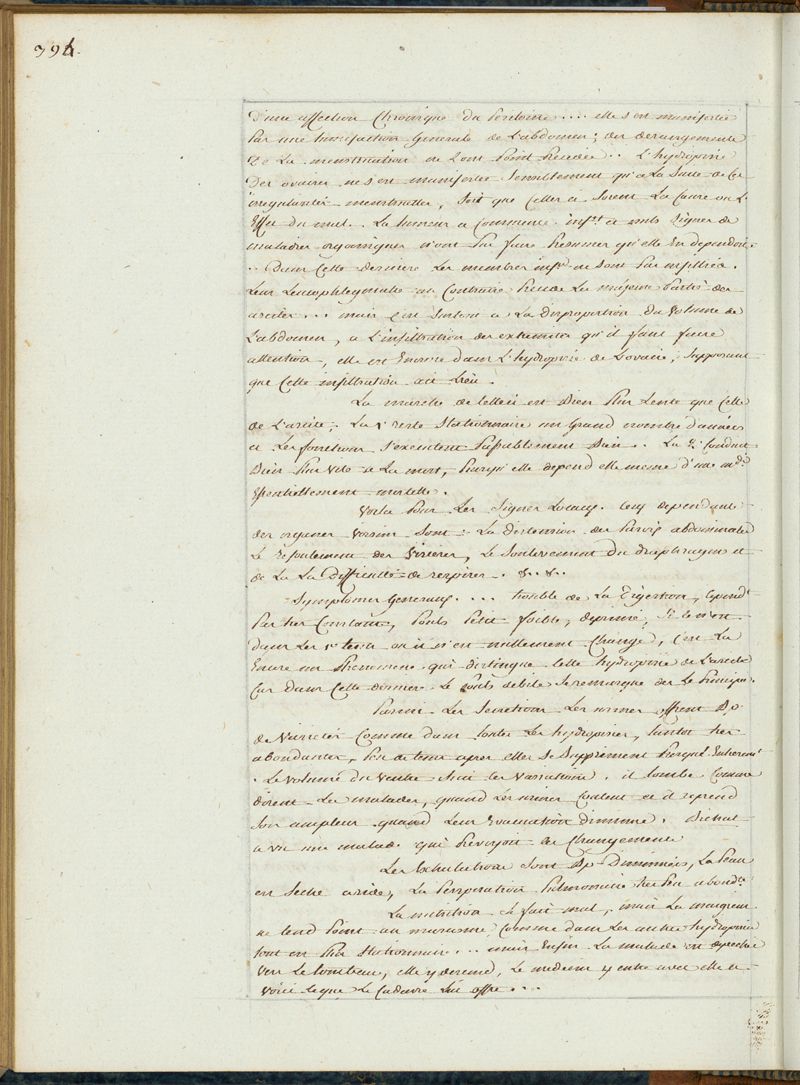 394.
d'une affection Chronique du Peritoine .... elle s'est manifestée
Par une tumefaction Generale de L'abdomen; des derangements
de La menstruation ne L'ont Point Precedée .. L'hydropisie
Des ovaires ne s'est manifestée Sensiblement qu'a La Suite de Ces
irregularités menstruelles, Soit que Celles ci Soient La Cause ou L'
Effet du mal .. La tumeur a Commencé inft. et nuls Signes de
maladies organiques n'ont Pu faire Presumer qu'elle En dependoit.
.. Dans Cette derniere Les membres infrs. ne Sont Pas infiltrés.
Leur Leucophlegmatie au Contraire Precede La majeure Partie des
ascites ... mais C'est Surtout a La disproportion du Volume de
L'abdomen, a L'infiltration des extremités qu'il faut faire
attention, elle est Enorme dans L'hydropisie de L'ovaire, Supposant
que Cette infiltration ait Lieu.
La marche de Celle ci est Bien Plus Lente que Celle
de L'ascite. La 1e reste Stationnaire un Grand nombre d'années
et Les fonctions S'executent Passablement Bien .. La 2e Conduit
Bien Plus Vite a La mort, Puisqu'elle depend elle meme d'une mdie
Essentiellement mortelle.
Voila Pour Les Signes Locaux. Ceux dependants
des organes Voisins Sont: La distension des Parois abdominales
Le refoulement des Visceres, Le Soulevement du diaphragme et
de La La difficulté de respirer. &.. &..
Symptomes Generaux .... Trouble de La Digestion,
Pas tres Constants, Pouls Petit foible, deprimé, Si ce n'est
dans Les 1ers tems ou il n'en nullement Changé, C'est La
Encore un Phenomene qui distingue Cette hydropisie de L'ascite
Car dans Cette derniere Le Pouls debile Se remarque des Le Principe.
Parmi Les Secretions Les urines offrent
de Varietés Comme dans toutes Les hydropisies, tantot tres
abondantes, Peu de tems apres elles Se Suppriment Presque Entierement
. Le Volume du Ventre Suit Ces Variations. il tombe Comme
disent Les malades, quand Les urines Coulent et il reprend
Son ampleur quand Leur Evacuation diminue. Bichat
a vu une malade qui Prevoyoit Ces Changements
Les Exhalations Sont Dimminuées, La Peau
est Seche aride, La Perspiration Pulmonaire tres Peu abondte.
La nutrition Se fait mal, mais La maigreur
ne tend Point au marasme Comme dans Les autres hydropisies
tout est Plus Stationnaire ... mais Enfin La malade est
Vers Le tombeau, elle y descend, Le medecin y entre avec elle et
Voici Ce que Le Cadavre Lui offre ...